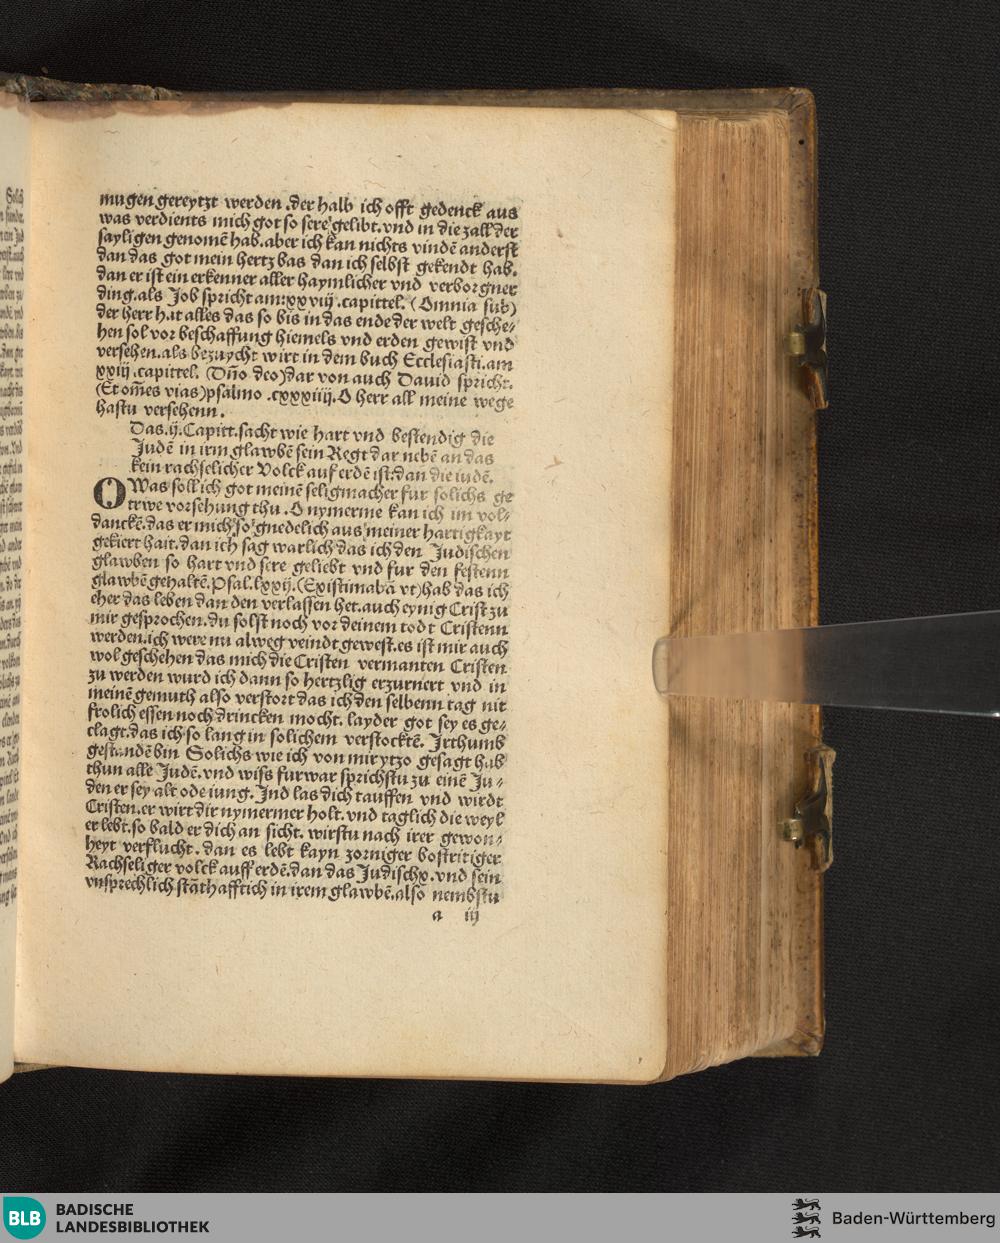 mugen gereytzt werden .der halb ich offt gedenck aus
was verdients mich got so sere gelibt.vnd in die zall der
sayligen genomē hab.aber ich kan nichts vindē anderst
dan das got mein hertz bas dan ich selbst gekendt hab.
dan er ist ein erkenner aller haymlicher vnd verborgner
ding.als Job spricht am:xxviij .capittel. (Omnia sub)
der herr hat alles das so bis in das ende der welt gesche⸗
hen sol vor beschaffung hiemels vnd erden gewist vnd
versehen.als bezuycht wirt in dem buch Ecclesiasti.am
xxiij .capittel. (Dño deo)dar von auch Dauid spricht.
(Et om̄es vias)psalmo .cxxxiiij.O herr all meine wege
hastu versehenn .
Das.ij.Capitt.sacht wie hart vnd bestendig die
Judē in irm glawbē sein Regt dar nebē an das
kein rachselicher Volck auf erdē ist:dan die iudē.
OWas soll ich got meinē seligmacher fur solichs ge
trwe vorsehung thu .O nymerme kan ich im vol⸗
danckē.das er mich so gnedelich aus meiner hartigkayt
gekiert hait.dan ich sag warlich das ich den Judischen
glawben so hart vnd sere geliebt vnd fur den festenn
glawbē gehaltē.Psal.lxxij.(Existimabā vt)hab das ich
eher das leben dan den verlassen het.auch eynig Crist zu
mir gesprochen.du solst noch vor deinem todt Cristenn
werden.ich were nu alweg veindt gewest.es ist mir auch
wol geschehen das mich die Cristen vermanten Cristen
zu werden wurd ich dann so hertzlig erzurnert vnd in
meinē gemuth also verstort das ich den selbenn tag nit
frolich essen noch drincken mocht. layder got sey es ge⸗
clagt.das ich so lang in solichem verstocktē. Irthumb
gestandē bin Solichs wie ich von mir ytzo gesagt hab
thun alle Judē.vnd wiss furwar sprichstu zu einē Ju⸗
den er sey alt ode iung. Ind las dich tauffen vnd wirdt
Cristen.er wirt dir nymermer holt.vnd taglich die weyl
er lebt.so bald er dich an sicht. wirstu nach irer gewon⸗
heyt verflucht. dan es lebt kayn zorniger bostritiger
Rachseliger volck auff erdē.dan das Judischx.vnd sein
vnsprechlich stāthafftich in irem glawbē.also nembstu
a iij
BLB
BADISCHE
LANDESBIBLIOTHEK
Baden-Württemberg